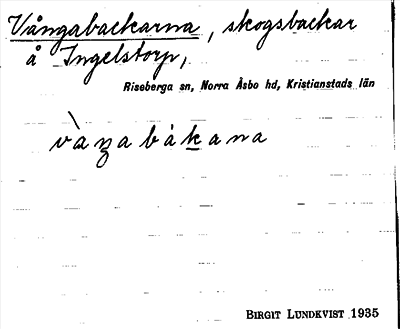 Vångabackarna, skogsbackar
å Ingelstorp,
Riseberga sn, Norra Åsbo hd, Kristianstads län
vàŋabákana
BIRGIT LUNDKVIST 1935